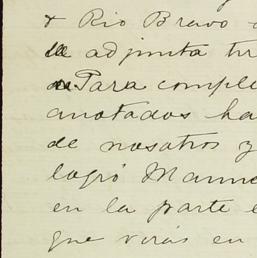 & Rio Bravo
la adjunta
Para comple
anotados ha
de nosotros y
logró
en la parte e
que verás en